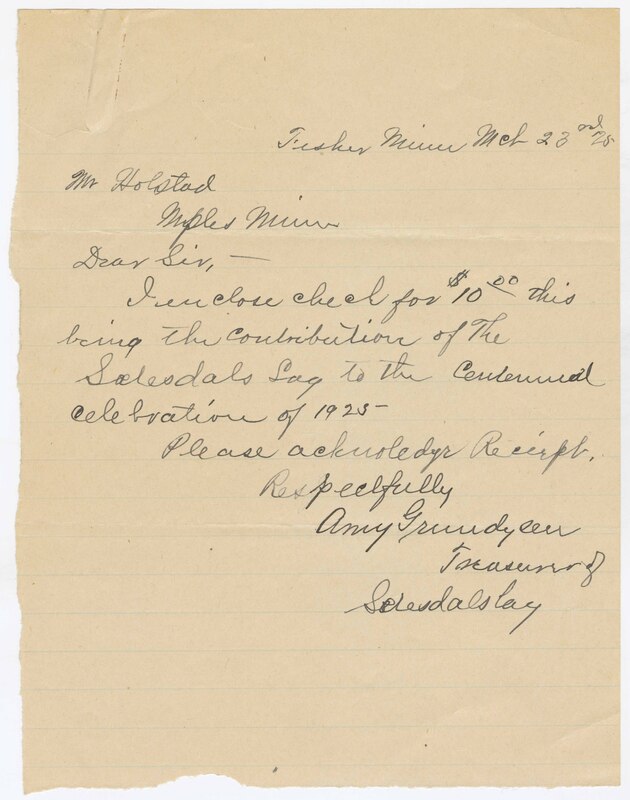 Fisher Minn Mch 23rd 25
Mr Holstad
Mpls Minn
Dear Sir, —
I enclose check for $10 00 this
being the contribution of The
Sætesdals Lag to the Centennial
celebration of 1925—
Please acknoledge Reciept.
Respectfully
Amy Grundysen
Treasurer of
Sætesdalslag